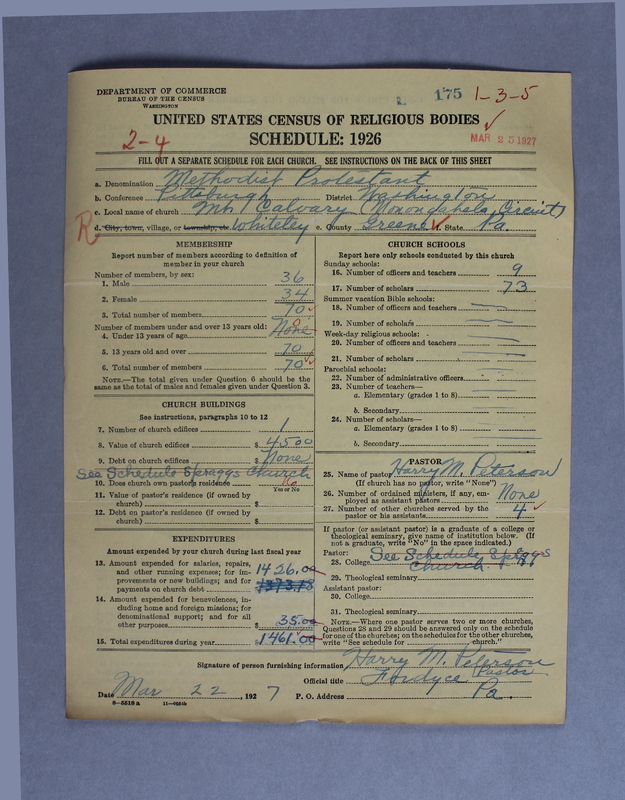 DEPARTMENT OF COMMERCE
BUREAU OF THE CENSUS
WASHINGTON
175 1-3-5
UNITED STATES CENSUS OF RELIGIOUS BODIES
2-4
SCHEDULE: 1926
MAR 25 1927
FILL OUT A SEPARATE SCHEDULE FOR EACH CHURCH. SEE INSTRUCTIONS ON THE BACK OF THIS SHEET
a. Denomination Methodist Protestant
b. Conference Pittsburgh District Washington
c. Local name of church Mt. Calvary (Monongahela Circuit)
R
d. City, town, village, or township, etc. Whiteley e. County Greene f. State Pa.
MEMBERSHIP
Report number of members according to definition of
member in your church
Number of members, by sex:
1. Male 36
2. Female 34
3. Total number of members 70
Number of members under and over 13 years old:
4. Under 13 years of age None
5. 13 years old and over 70
6. Total number of members 70
NOTE.—The total given under Question 6 should be the
same as the total of males and females given under Question 3.
CHURCH BUILDINGS
See instructions, paragraphs 10 to 12
7. Number of church edifices 1
8. Value of church edifices $ 4500
9. Debt on church edifices $ None
See Schedule Spraggs Church
10. Does church own pastor's residence
Yes or No
11. Value of pastor's residence (if owned by
church) $
12. Debt on pastor's residence (if owned by
church) $
EXPENDITURES
Amount expended by your church during last fiscal year
13. Amount expended for salaries, repairs,
and other running expenses; for im-
provements or new buildings; and for
payments on church debt $ 1426.00
1373.18
14. Amount expended for benevolences, in-
cluding home and foreign missions; for
denominational support; and for all
other purposes $ 35.00
15. Total expenditures during year $ 1461.00
CHURCH SCHOOLS
Report here only schools conducted by this church
Sunday schools:
16. Number of officers and teachers 9
17. Number of scholars 73
Summer vacation Bible schools:
18. Number of officers and teachers
19. Number of scholars
Week-day religious schools:
20. Number of officers and teachers
21. Number of scholars
Parochial schools:
22. Number of administrative officers
23. Number of teachers—
a. Elementary (grades 1 to 8)
b. Secondary
24. Number of scholars—
a. Elementary (grades 1 to 8)
b. Secondary
PASTOR
25. Name of pastor Harry M. Peterson
(If church has no pastor, write "None")
26. Number of ordained ministers, if any, em-
ployed as assistant pastors None
27. Number of other churches served by the
pastor or his assistants 4
If pastor (or assistant pastor) is a graduate of a college or
theological seminary, give name of institution below. (If
not a graduate, write "No" in the space indicated.)
Pastor: See Schedule, Spraggs
28. College Church
29. Theological seminary
Assistant pastor:
30. College
31. Theological seminary
NOTE.—Where one pastor serves two or more churches,
Questions 28 and 29 should be answered only on the schedule
for one of the churches; on the schedules for the other churches,
write "See schedule for church."
Signature of person furnishing information Harry M. Peterson
Official title Pastor
Fordyce
Date Mar 22, 1927 P. O. Address Pa.
8—5518 a